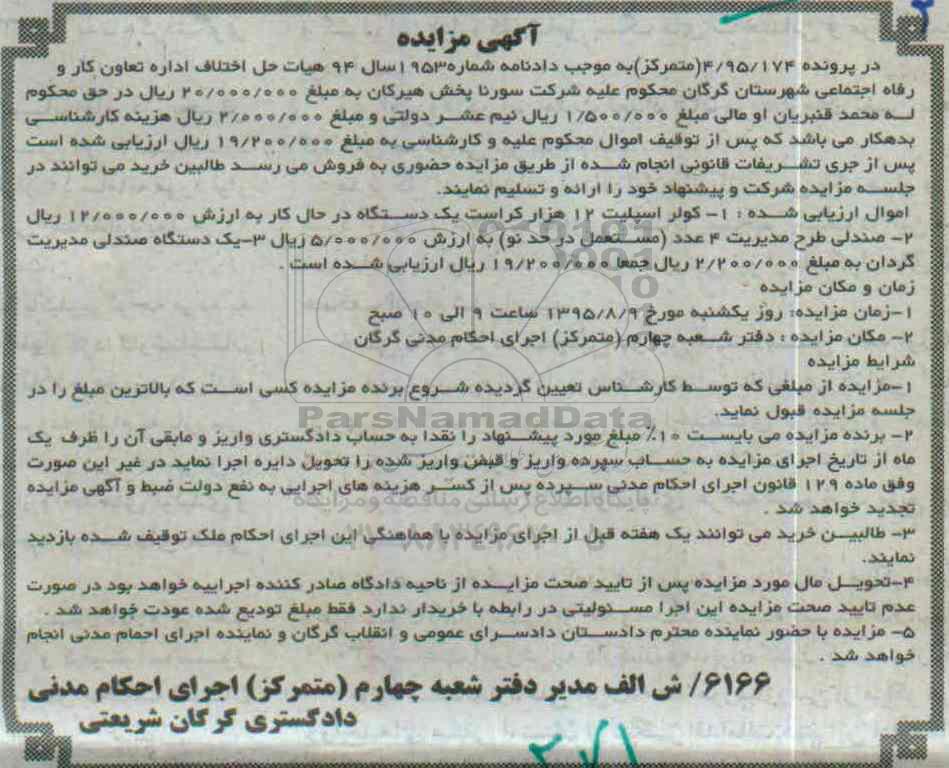 آگهی مزایده
در پرونده ۴/۹۵/۱۷۴(متمرکز)به موجب دادنامه شماره۱۹۵۳سال ۹۴ هیات حل اختلاف اداره تعاون کار و
رفاه اجتماعی شهرستان گرگان محکوم علیه شرکت سورنا پخش هیرکان به مبلغ ۲۰/۰۰۰/۰۰۰ ریال در حق محکوم
لـه محمد قنبریان او مالی مبلغ ۱/۵۰۰/۰۰۰ ریال نیم عشـر دولتی و مبلغ ۲/۰۰۰/۰۰۰ ریال هزینه کارشناسـی
بدهکار می باشد که پس از توقیف اموال محکوم علیه و کارشناسی به مبلغ ۱۹/۲۰۰/۰۰۰ ریال ارزیابی شده است
پس از جری تشـریفات قانونی انجام شـده از طریق مزایده حضوری به فروش می رسـد طالبین خرید می توانند در
جلسـه مزایده شرکت و پیشنهاد خود را ارائه و تسلیم نمایند.
اموال ارزیابی شـده : ۱- کولر اسپلیت ۱۲ هزار کراست یک دسـتگاه در حال کار به ارزش ۱۲/۰۰۰/۰۰۰ ریال
۲- صندلی طرح مدیریت ۴ عدد (مسـتعمل در حد نو) به ارزش ۵/۰۰۰/۰۰۰ ریال ۳-یک دستگاه صندلی مدیریت
گردان به مبلغ ۲/۲۰۰/۰۰۰ ریال جمعا ۱۹/۲۰۰/۰۰۰ ریال ارزیابی شـده است .
زمان و مکان مزایده
۱-زمان مزایده: روز یکشنبه مورخ ۱۳۹۵/۸/۹ ساعت ۹ الی ۱۰ صبح
۲- مکان مزایده : دفتر شـعبه چهارم (متمرکز) اجرای احکام مدنی گرگان
شرایط مزایده
۱-مزایده از مبلغی که توسـط کارشـناس تعیین گردیده شـروع برنده مزایده کسی اسـت که بالاترین مبلغ را در
جلسه مزایده قبول نماید.
ParsNamadData
۲- برنده مزایده می بایسـت ۱۰٪ مبلغ مورد پیشـنهاد را نقدا به حساب دادگستری واریز و مابقی آن را ظرف یک
ماه از تاریخ اجرای مزایده به حسـاب سپرده واریز و قبض واریز شده را تحویل دایره اجرا نماید در غیر این صورت
وفق ماده ۱۲۹ قانون اجرای احکام مدنی سـپرده پس از کسـر هزینه های اجرایی به نفع دولت ضبط و آگهی مزایده
پایگاه اطلاع رسانی مناقصه و مزایده
تجدید خواهد شد .
۳- طالبیـن خرید می توانند یک هفته قبل از اجرای مزایده با هماهنگی این اجرای احکام ملک توقیف شـده بازدید
نمایند.
۴-تحویـل مال مورد مزایده پس از تایید صحت مزایـده از ناحیه دادگاه صادر کننده اجراییه خواهد بود در صورت
عدم تایید صحت مزایده این اجرا مسـئولیتی در رابطه با خریدار ندارد فقط مبلغ تودیع شده عودت خواهد شد .
۵- مزایده با حضور نماینده محترم دادسـتان دادسـرای عمومی و انقلاب گرگان و نماینده اجرای احمام مدنی انجام
خواهد شد .
۶۱۶۶/ ش الف مدیر دفتر شعبه چهارم (متمرکز) اجرای احکام مدنی
دادگستری گرگان شریعتی
۲۷۱